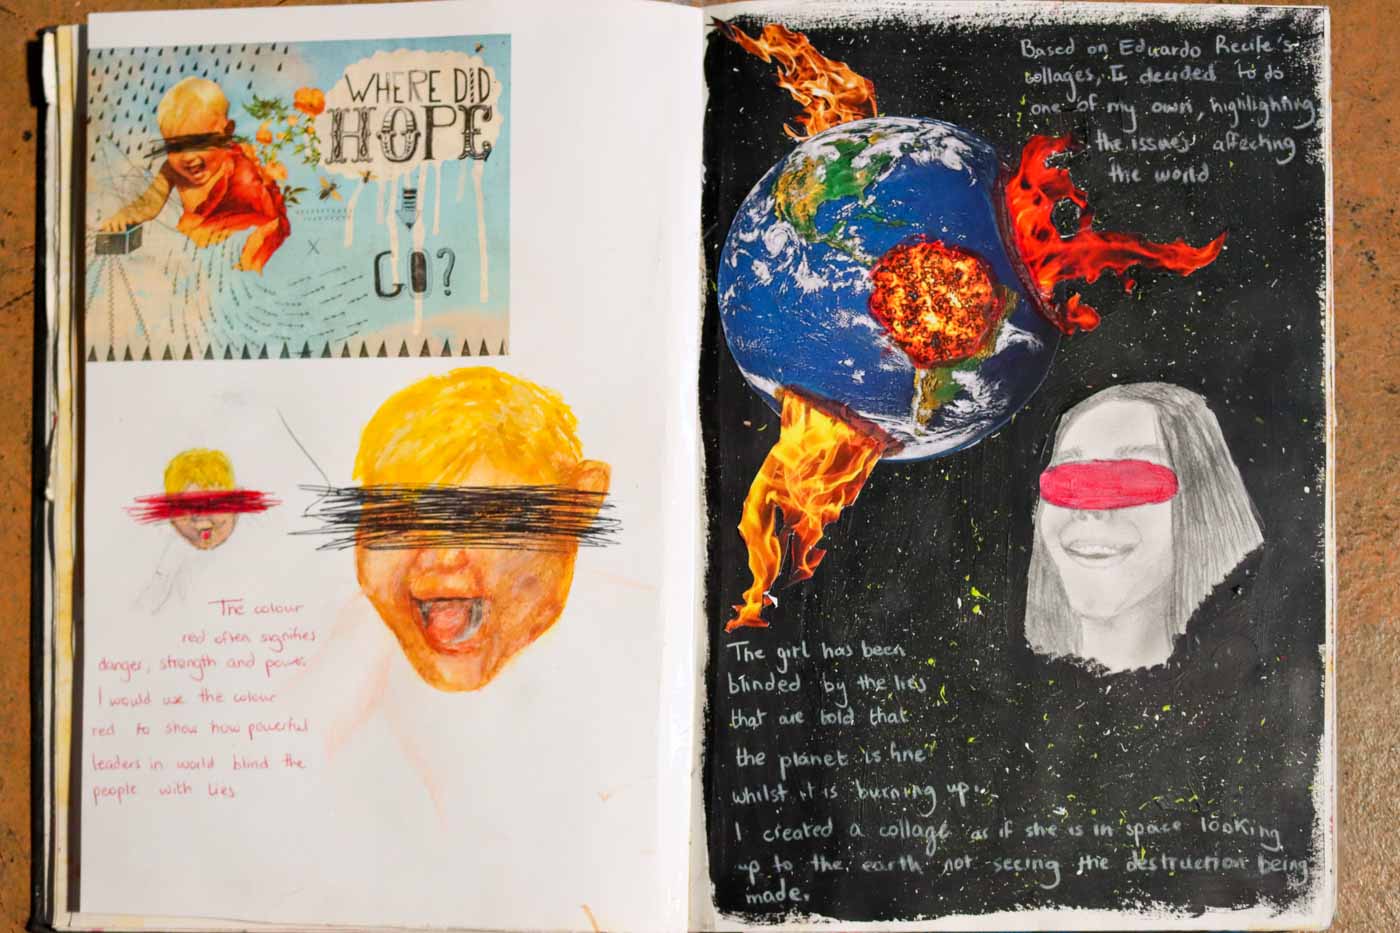 WHERE DID
HOPE
X
GO?
The colour
red often signifies
danger, strength and power.
I would use the colour
red to show how powerful
leaders in world blind the
people with lies
Based on Eduardo Recife's
collages, I decided to do
one of my own, highlighting
the issues affecting
the world
The girl has been
blinded by the lies
that are told that
the planet is fine
whilst it is burning up.
I created a collage as if she is in space looking
up to the earth not seeing the destruction being
made.